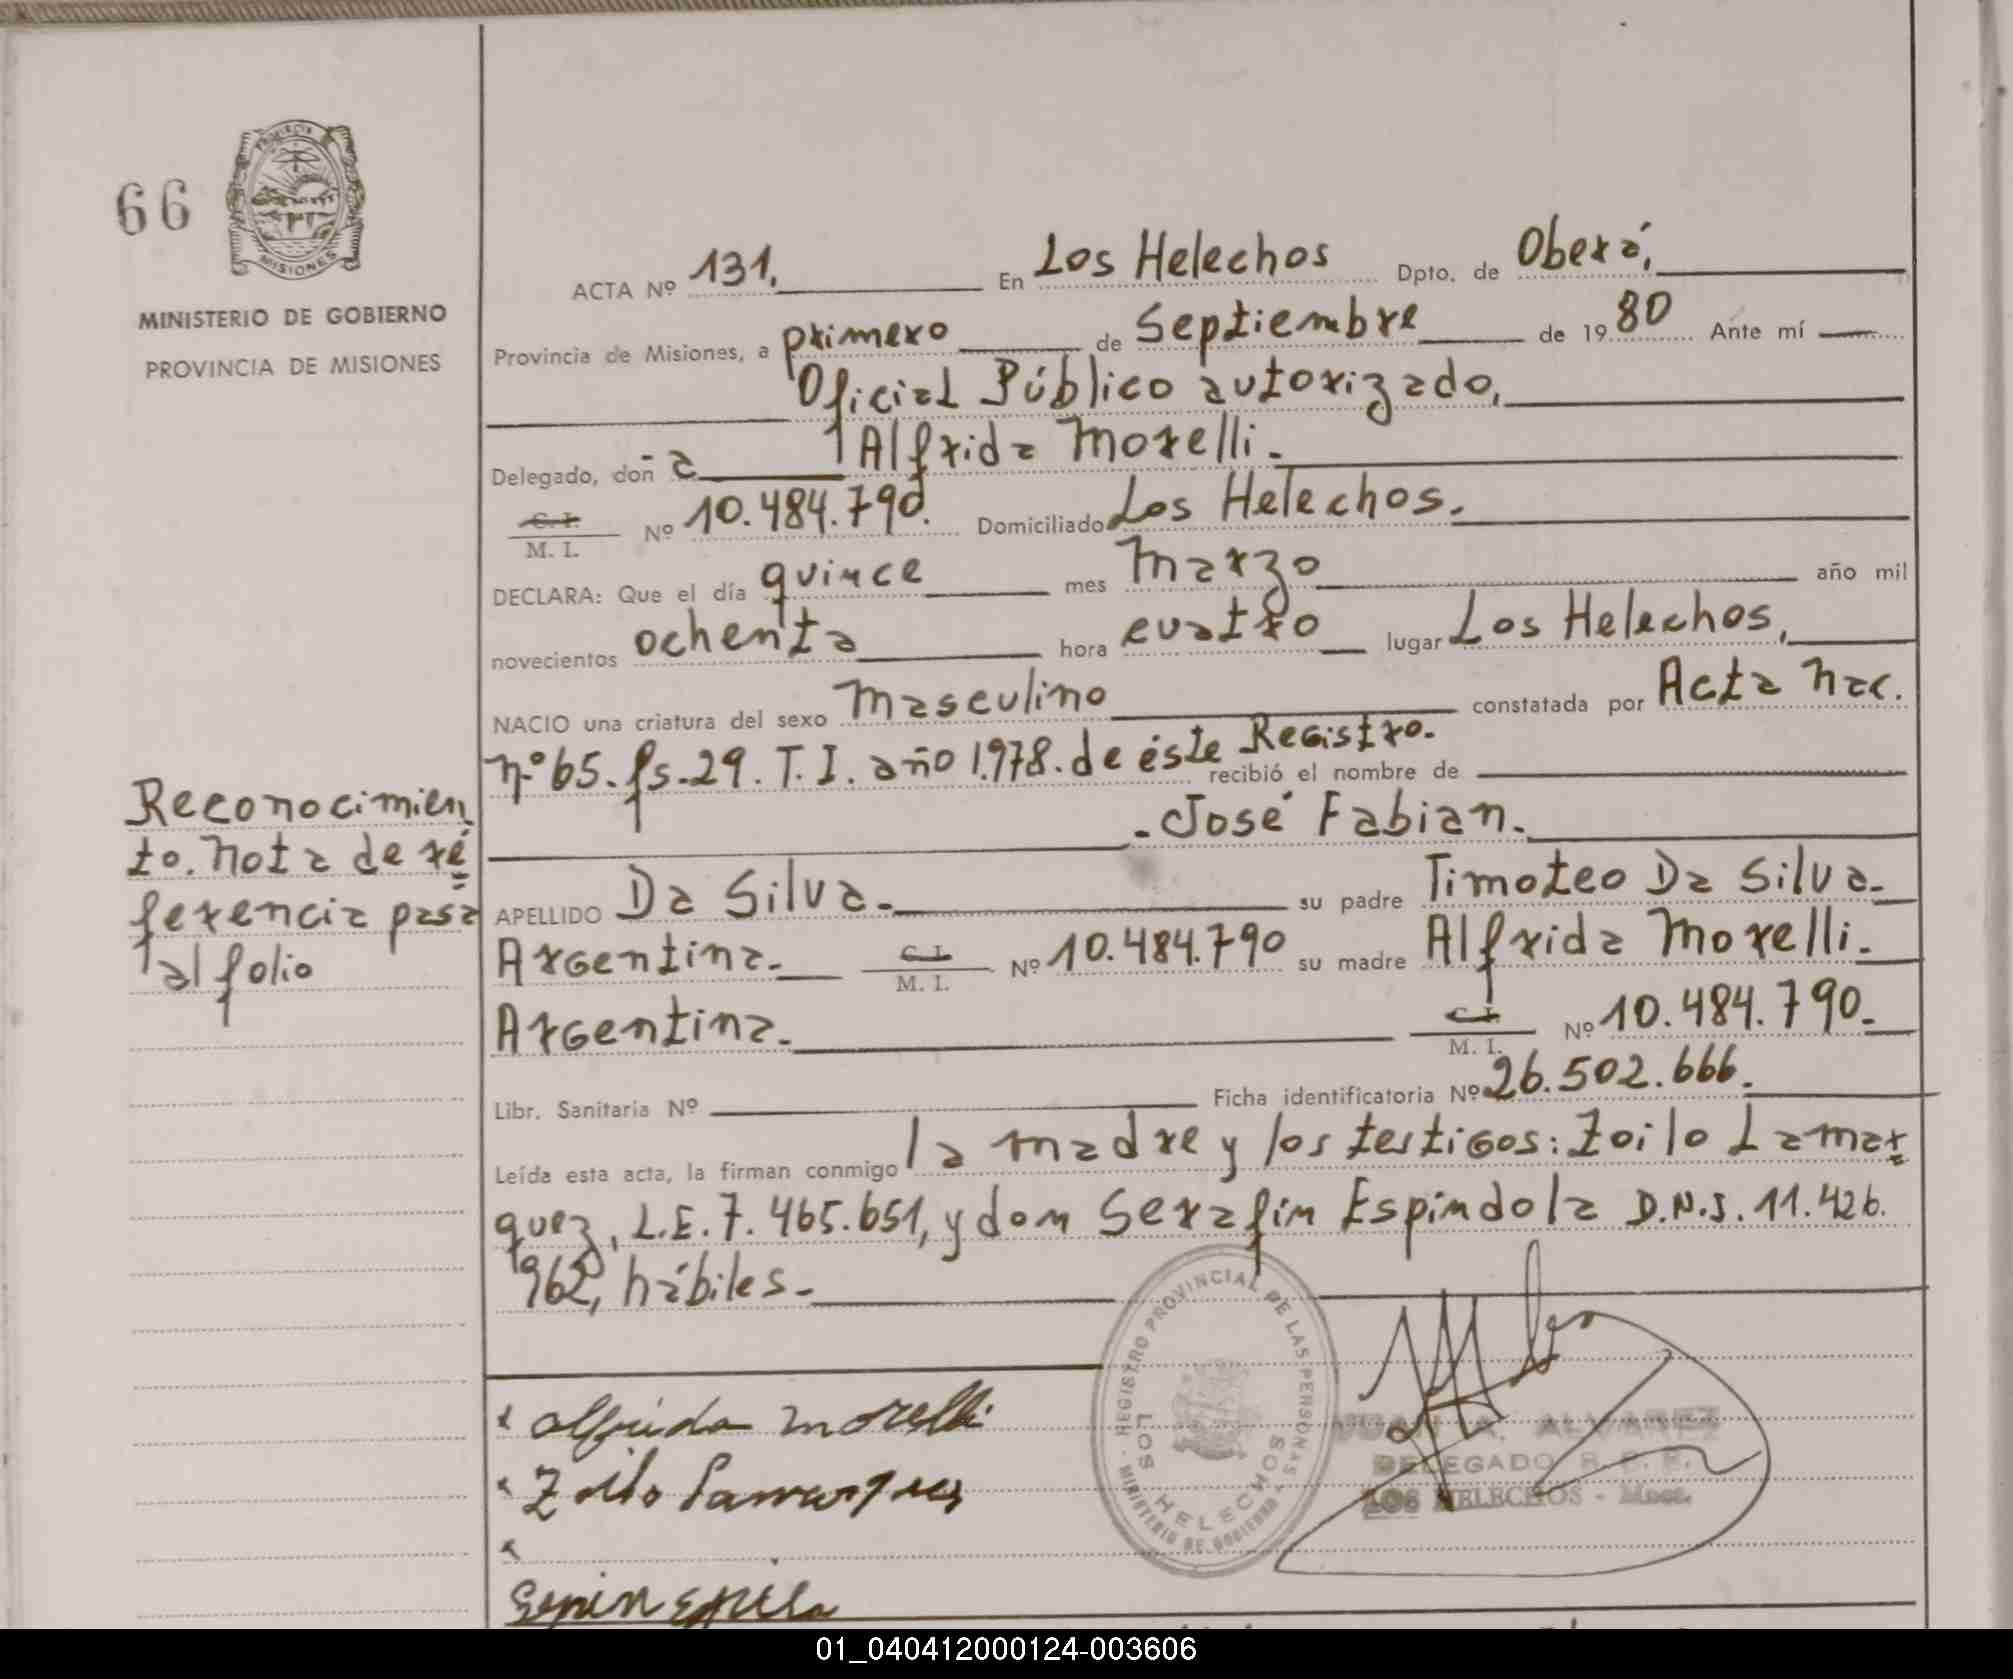 66
PROVINCIA
MISIONES
MINISTERIO DE GOBIERNO
PROVINCIA DE MISIONES
ACTA Nº 131. En Los Helechos Dpto. de Oberá,
Provincia de Misiones, a primero de Septiembre de 1980 Ante mí
Oficial Público autorizado,
Delegado, doña Alfrida Morelli.
C. I.
M. I. Nº 10.484.790. Domiciliado Los Helechos.
DECLARA: Que el día quince mes Marzo año mil
novecientos ochenta hora cuatro lugar Los Helechos,
NACIO una criatura del sexo Masculino constatada por Acta Nac.
Nº 65. fs. 29. T. I. año 1.978. de éste Registro. recibió el nombre de
José Fabian.
APELLIDO Da Silva. su padre Timoteo Da Silva.
Argentina. C. I. M. I. Nº 10.484.790 su madre Alfrida Morelli.
Argentina. C. I. M. I. Nº 10.484.790.
Libr. Sanitaria Nº Ficha identificatoria Nº 26.502.666.
Leída esta acta, la firman conmigo la madre y los testigos: Zoilo Lamar
quez, L.E. 7.465.651, y don Serafin Espindola D.N.I. 11.426.
962, hábiles.
Reconocimien
to. Nota de ré
ferencia pasa
al folio
x Alfrida Morelli
x Zoilo Lamarquez
x
REGISTRO PROVINCIAL DE LAS PERSONAS
MINISTERIO DE GOBIERNO
LOS HELECHOS
JUAN A. ALVAREZ
DELEGADO R. P. P.
LOS HELECHOS - Mnes.
01_040412000124-003606